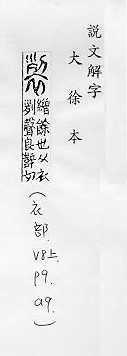 説文解字
大徐本
裂
繒餘也从衣
𠛱聲良辥切
(衣部. V8上. P9. a9.)